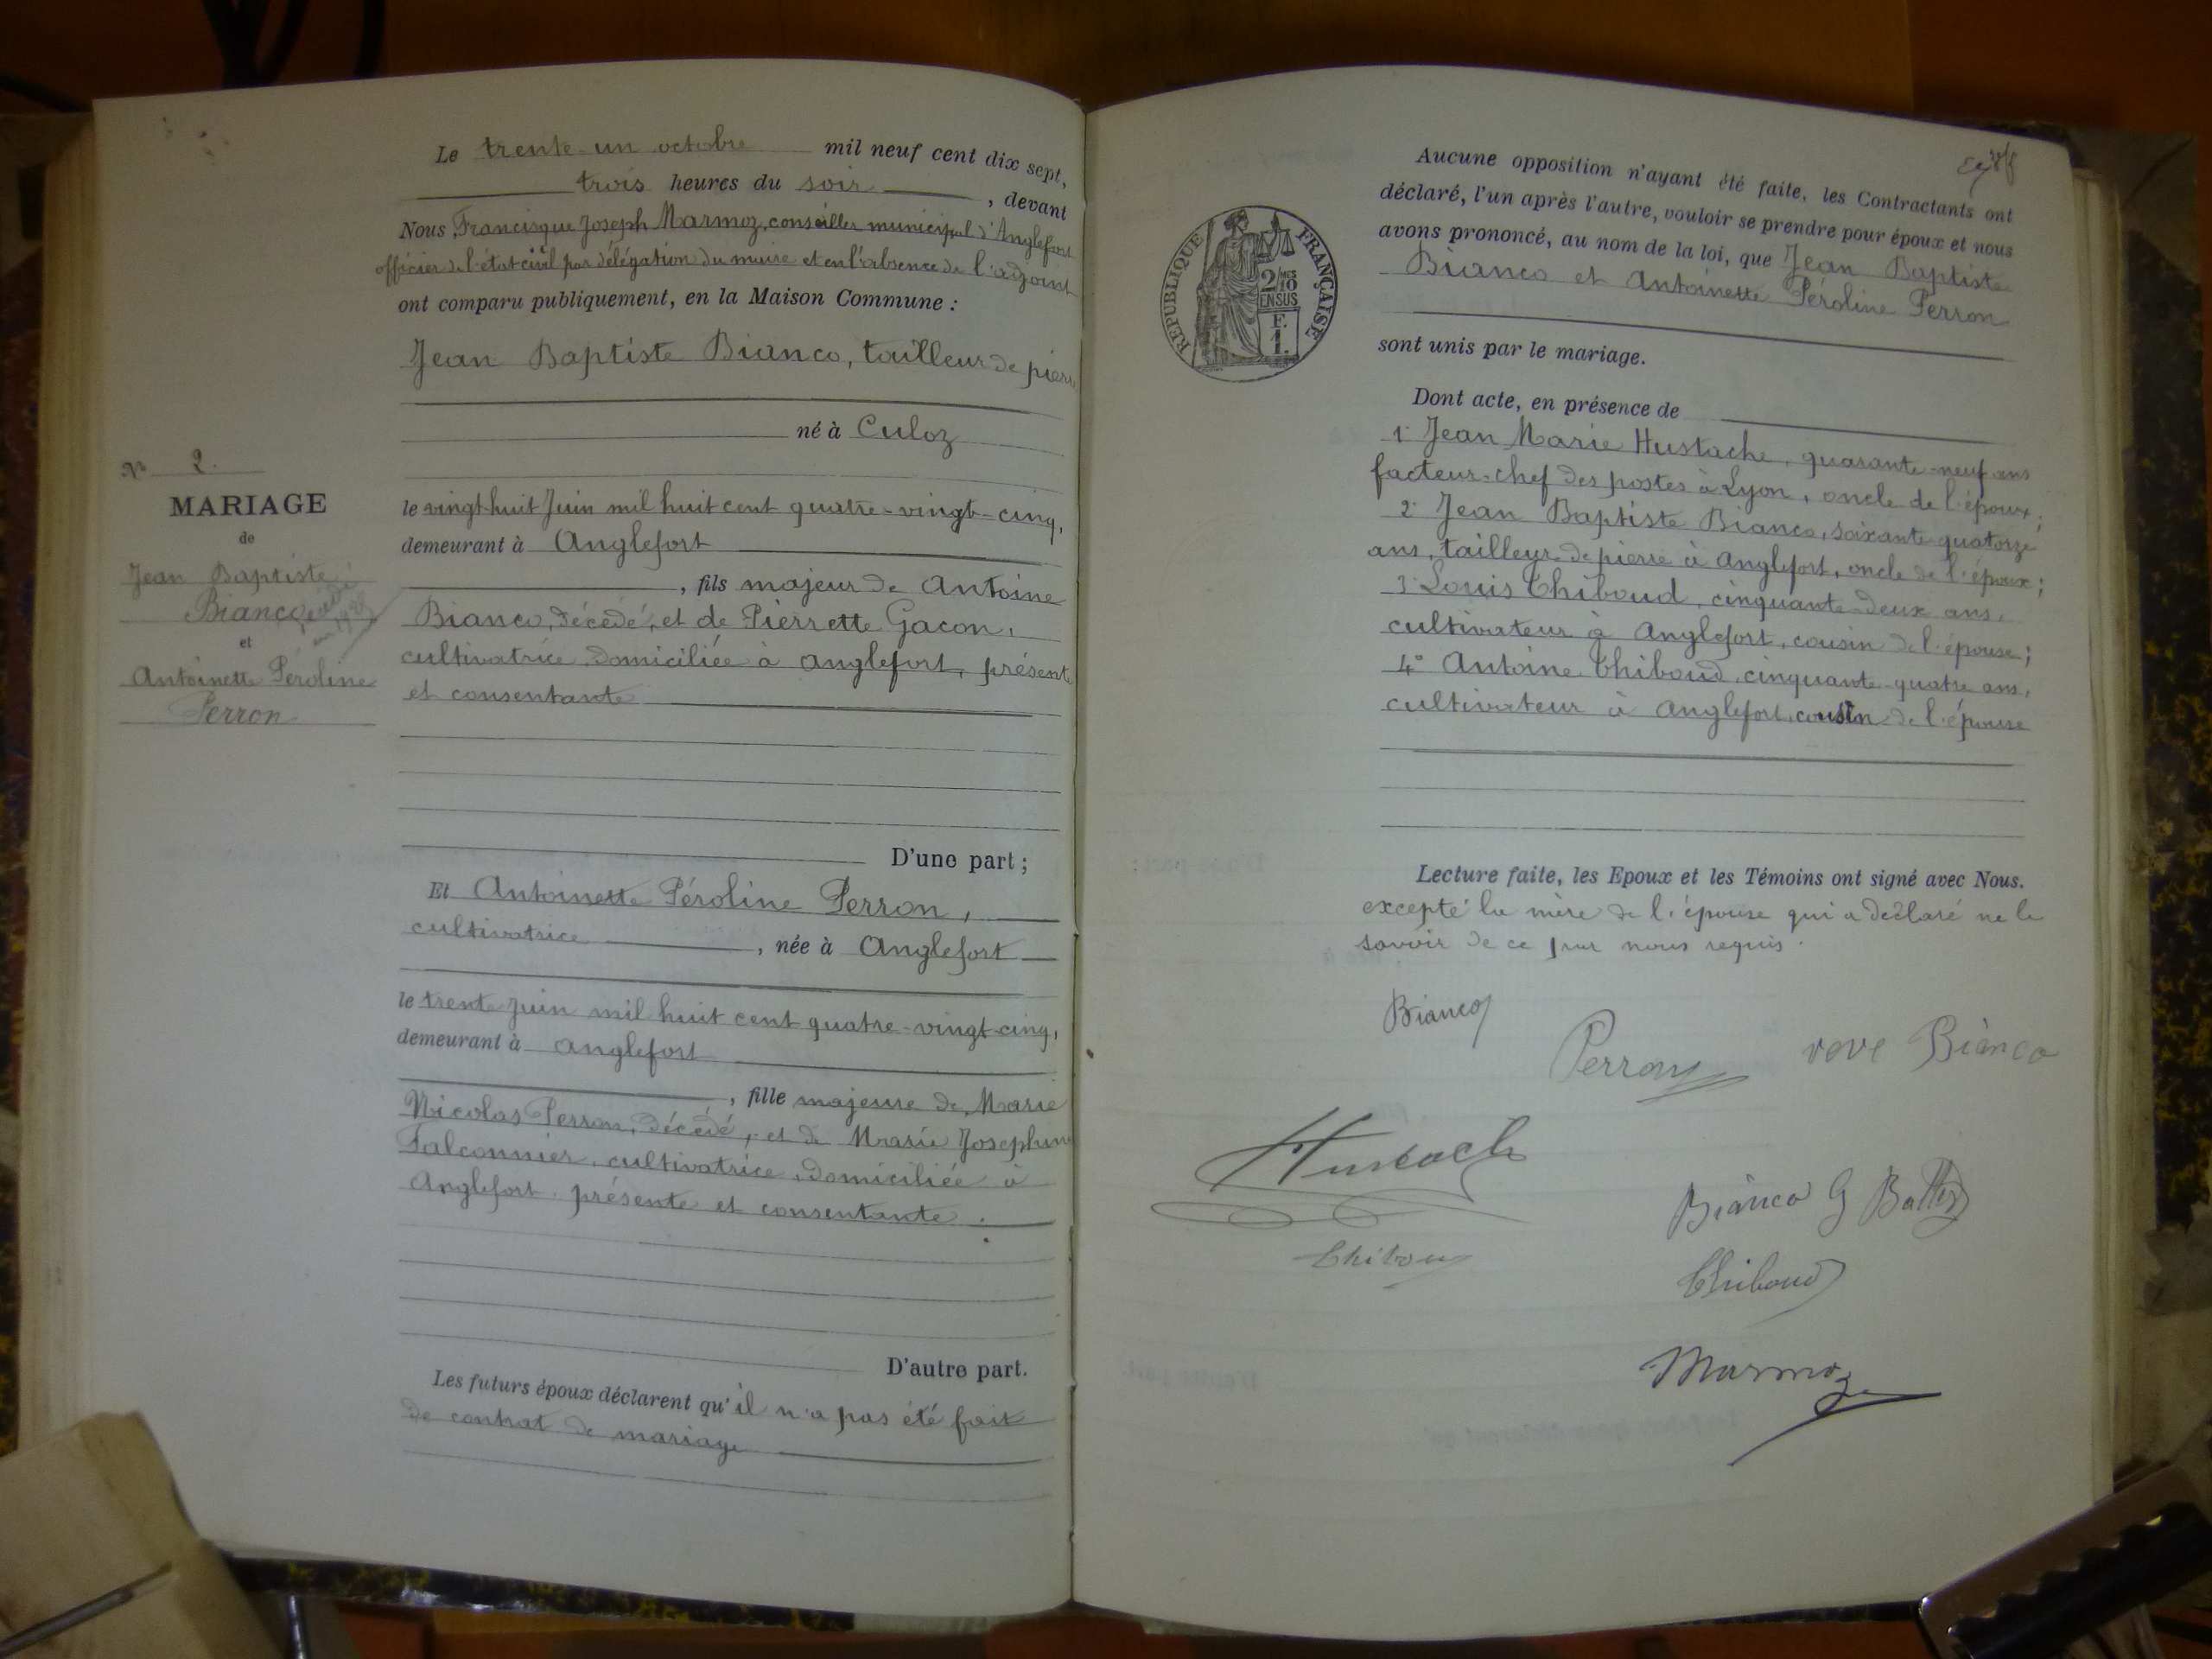 Le trente-un octobre mil neuf cent dix sept,
trois heures du soir, devant
Nous, Francisque Joseph Marmoz, conseiller municipal d'Anglefort
officier de l'état civil par délégation du maire et en l'absence de l'adjoint
ont comparu publiquement, en la Maison Commune :
Jean Baptiste Bianco, tailleur de pierre
né à Culoz
le vingt-huit Juin mil huit cent quatre-vingt-cinq,
demeurant à Anglefort
, fils majeur de Antoine
Bianco, décédé, et de Pierrette Gacon,
cultivatrice, domiciliée à Anglefort, présente
et consentante
D'une part ;
Et Antoinette Péroline Perron,
cultivatrice, née à Anglefort
le trente juin mil huit cent quatre-vingt-cinq,
demeurant à Anglefort
, fille majeure de Marie
Nicolas Perron, décédé, et de Marie Josephine
Falconnier, cultivatrice, domiciliée à
Anglefort, présente et consentante.
D'autre part.
Les futurs époux déclarent qu'il n'a pas été fait
de contrat de mariage
N° 2.
MARIAGE
de
Jean Baptiste
Bianco
et
Antoinette Péroline
Perron
RÉPUBLIQUE FRANÇAISE
2/10
EN SUS
F.
1.
Aucune opposition n'ayant été faite, les Contractants ont
déclaré, l'un après l'autre, vouloir se prendre pour époux et nous
avons prononcé, au nom de la loi, que Jean Baptiste
Bianco et Antoinette Péroline Perron
sont unis par le mariage.
Dont acte, en présence de
1° Jean Marie Hustache, quarante-neuf ans
facteur-chef des postes à Lyon, oncle de l'époux;
2° Jean Baptiste Bianco, soixante-quatorze
ans, tailleur de pierre à Anglefort, oncle de l'époux;
3° Louis Thiboud, cinquante-deux ans,
cultivateur à Anglefort, cousin de l'épouse;
4° Antoine Thiboud, cinquante-quatre ans,
cultivateur à Anglefort, cousin de l'épouse
Lecture faite, les Epoux et les Témoins ont signé avec Nous.
excepté la mère de l'épouse qui a déclaré ne le
savoir de ce par nous requis.
Bianco
Perron
veve Bianco
Hustache
Bianco G Batta
Thibou
Thiboud
Marmoz